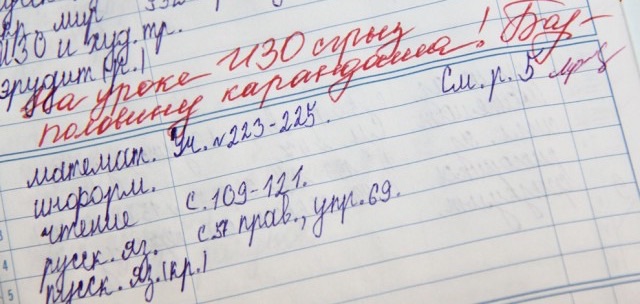 мир
ИЗО и худ. тр.
эрудит (кр.)
На уроке ИЗО сгрыз
половину карандаша! Бар-
См. р. 5
математ. Уч. №223-225.
информ.
чтение с. 109-121.
русск. яз. с. 37 прав., упр. 69.
русск. яз. (кр.)
3
4
5